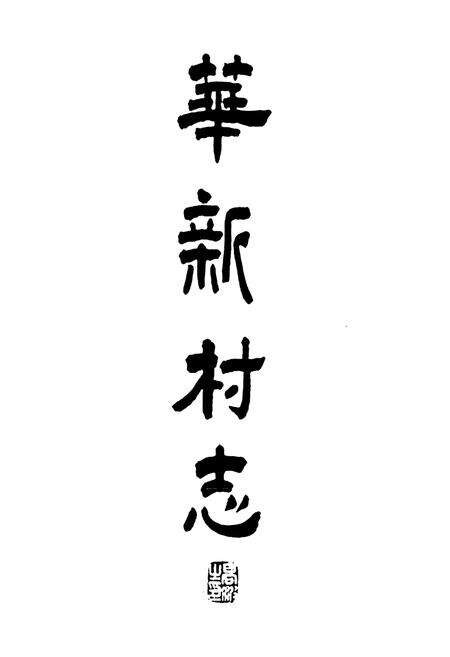 華新村志